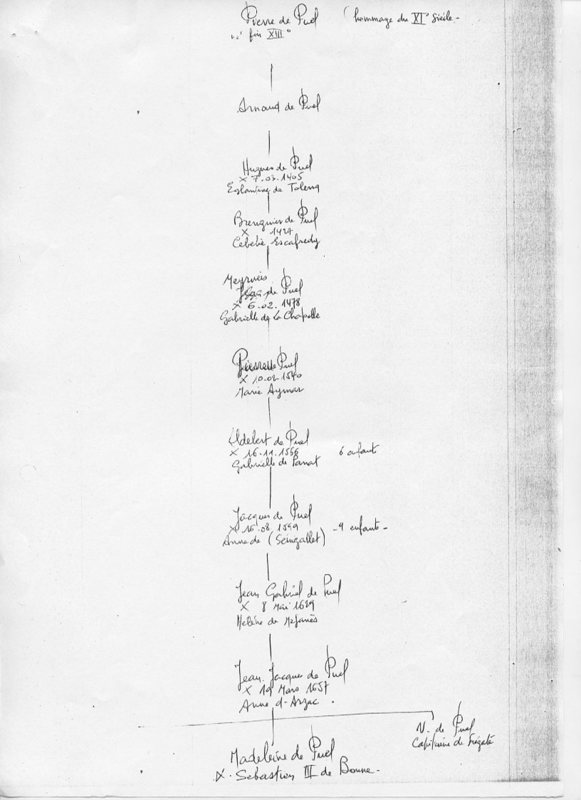 Pierre de Puel (hommage du XI Siècle -
"fin XIII"
Arnaud de Puel
Hugues de Puel
X 7.02.1405
de Tolena
Brenguier de Puel
X 1427
Escafredy
Meyrueis
de Puel
X 6.02.1478
Gabrielle de la Chapelle
Puel
X 10.02.1540
Marie Aymar
Aldebert de Puel
X 16.11.1556 6 enfants
Gabrielle de Panat
Jacques de Puel
X 16.08.1599 - 4 enfants -
Anne de (Seingallet)
Jean Gabriel de Puel
X 8 Mai 1629
Hélène de Mejanès
Jean Jacques de Puel
X 19 Mars 1657
Anne d'Arzac.
N. de Puel
Capitaine de frégate
Madeleine de Puel
X. Sebastien III de Bonne -